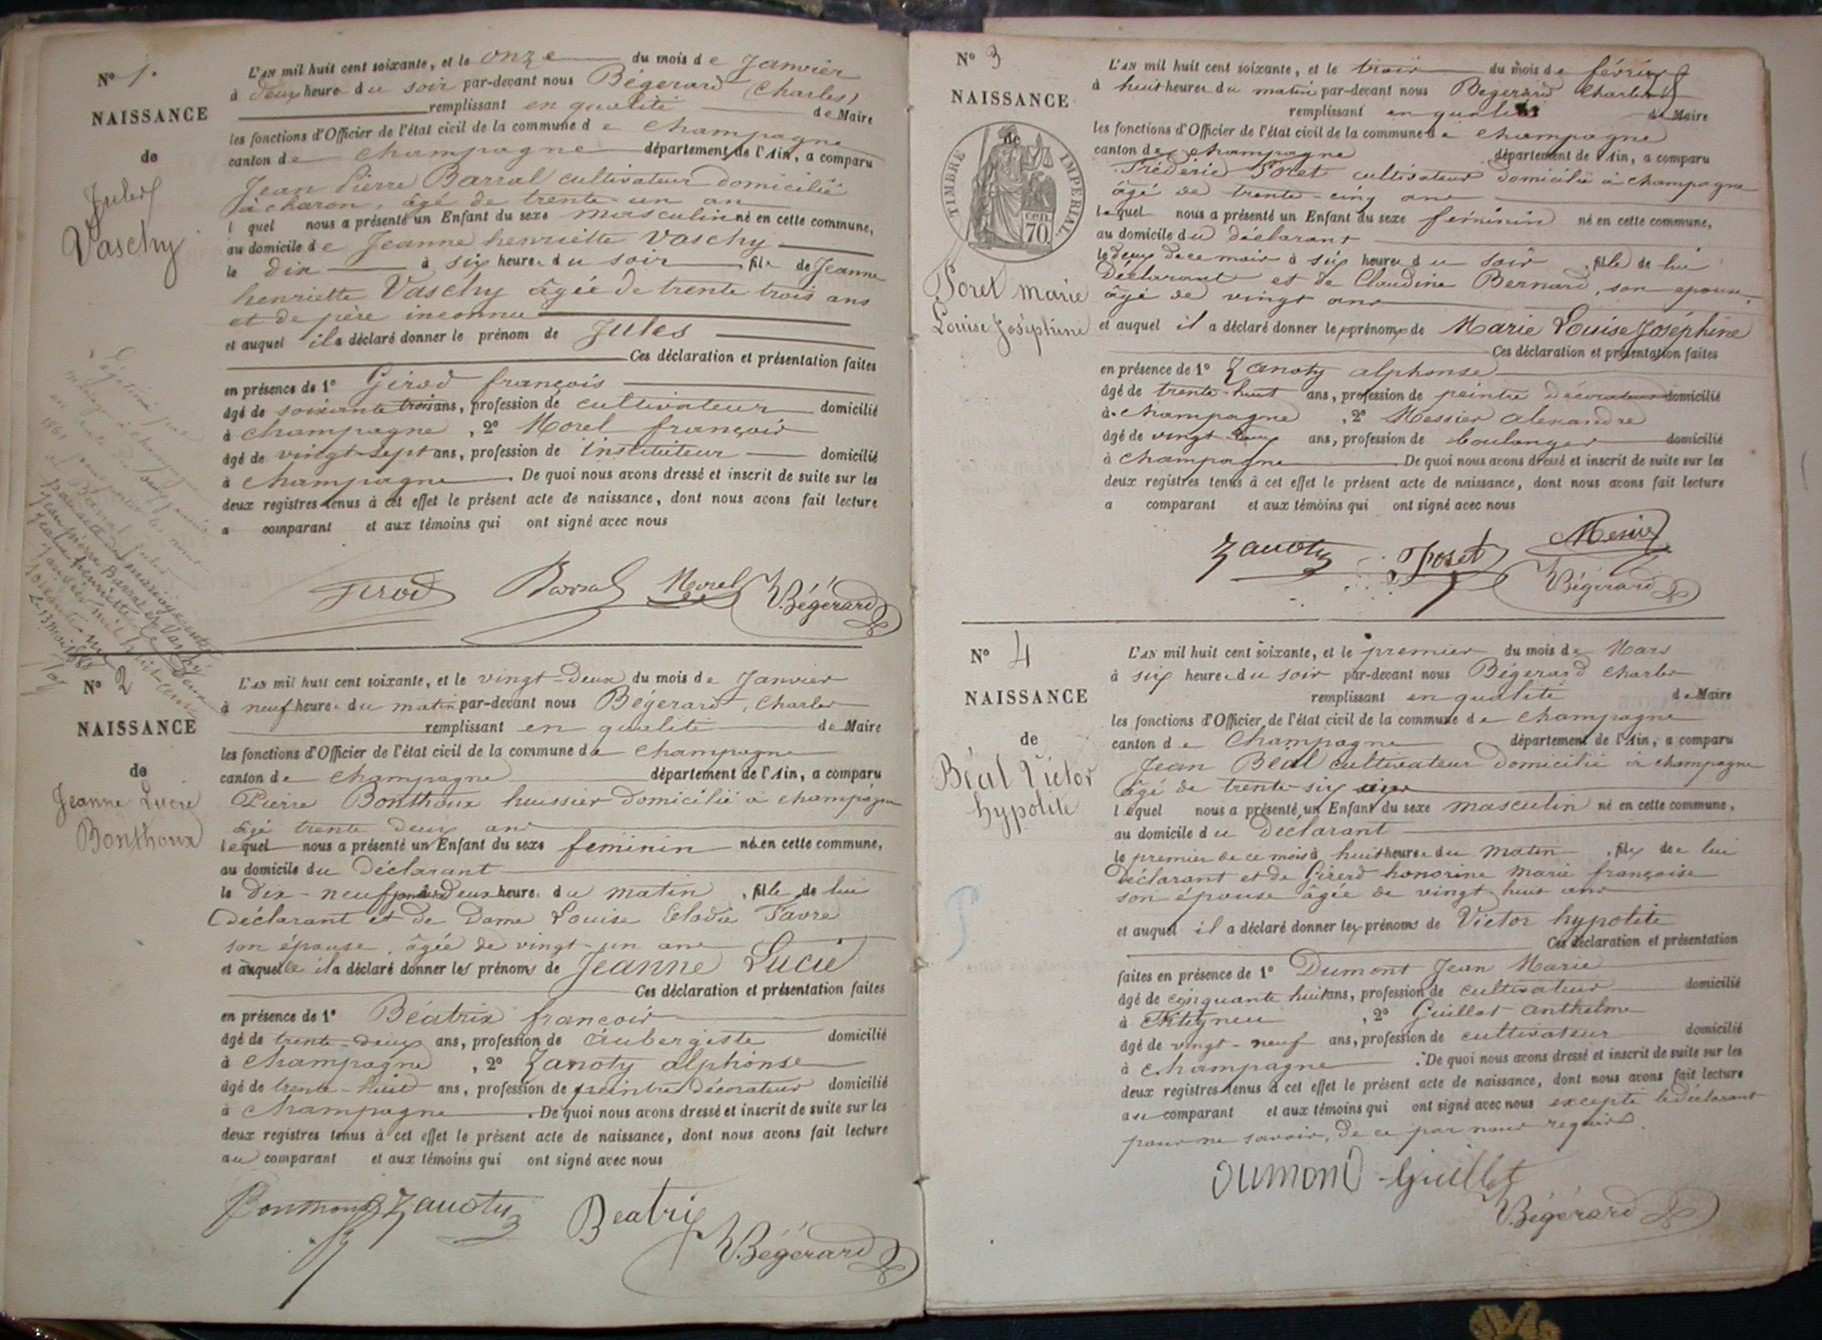 N° 1.
NAISSANCE
de
Jules
Vaschy
L'AN mil huit cent soixante, et le onze du mois de Janvier
à deux heures du soir par-devant nous Bégerard (Charles)
remplissant en qualité de Maire
les fonctions d'Officier de l'état civil de la commune de champagne
canton de champagne département de l'Ain, a comparu
Jean Pierre Barral cultivateur domicilié
à charon, âgé de trente un an
lequel nous a présenté un Enfant du sexe masculin né en cette commune,
au domicile de Jeanne henriette Vaschy
le dix à six heures du soir fils de Jeanne
henriette Vaschy âgée de trente trois ans
et de père inconnu
et auquel il a déclaré donner le prénom de Jules
Ces déclaration et présentation faites
en présence de 1° Girod françois
âgé de soixante trois ans, profession de cultivateur domicilié
à champagne, 2° Morel françois
âgé de vingt-sept ans, profession de instituteur domicilié
à champagne. De quoi nous avons dressé et inscrit de suite sur les
deux registres tenus à cet effet le présent acte de naissance, dont nous avons fait lecture
a comparant et aux témoins qui ont signé avec nous
Girod Barral Morel Bégerard
N° 2
NAISSANCE
de
Jeanne Lucie
Bonthoux
L'AN mil huit cent soixante, et le vingt-deux du mois de Janvier
à neuf heures du matin par-devant nous Bégerard, Charles
remplissant en qualité de Maire
les fonctions d'Officier de l'état civil de la commune de champagne
canton de champagne département de l'Ain, a comparu
Pierre Bonthoux huissier domicilié à champagne
âgé trente deux ans
lequel nous a présenté un Enfant du sexe féminin né en cette commune,
au domicile du déclarant
le Dix-neuf à deux heures du matin, fille de lui
Déclarant et de Dame Louise Elodie Favre
son épouse, âgée de vingt-un ans
et auquelle il a déclaré donner les prénoms de Jeanne Lucie
Ces déclaration et présentation faites
en présence de 1° Béatrix françois
âgé de trente-deux ans, profession de aubergiste domicilié
à champagne, 2° Zanoty alphonse
âgé de trente-huit ans, profession de peintre décorateur domicilié
à champagne. De quoi nous avons dressé et inscrit de suite sur les
deux registres tenus à cet effet le présent acte de naissance, dont nous avons fait lecture
au comparant et aux témoins qui ont signé avec nous
Zanoty Beatrix Bégerard
N° 3
NAISSANCE
de
TIMBRE IMPÉRIAL
CEN. 70
Poret marie
Louise Joséphine
L'AN mil huit cent soixante, et le trois du mois de février
à huit heures du matin par-devant nous Bégerard Charles
remplissant en qualité de Maire
les fonctions d'Officier de l'état civil de la commune de champagne
canton de champagne département de l'Ain, a comparu
Fréderic Poret cultivateur domicilié à champagne
âgé de trente-cinq ans
lequel nous a présenté un Enfant du sexe féminin né en cette commune,
au domicile du déclarant
le deux de ce mois à six heures du soir, fille de lui
Déclarant et de Claudine Bernard, son epouse,
âgé de vingt ans
et auquel il a déclaré donner les prénoms de Marie Louise Joséphine
Ces déclaration et présentation faites
en présence de 1° Zanoty alphonse
âgé de trente-huit ans, profession de peintre décorateur domicilié
à champagne, 2° Messier alexandre
âgé de vingt deux ans, profession de boulanger domicilié
à champagne. De quoi nous avons dressé et inscrit de suite sur les
deux registres tenus à cet effet le présent acte de naissance, dont nous avons fait lecture
a comparant et aux témoins qui ont signé avec nous
Zanoty Poret Bégerard
N° 4
NAISSANCE
de
Béal Victor
hypolite
L'AN mil huit cent soixante, et le premier du mois de Mars
à six heures du soir par-devant nous Bégerard Charles
remplissant en qualité de Maire
les fonctions d'Officier de l'état civil de la commune de champagne
canton de Champagne département de l'Ain, a comparu
Jean Béal cultivateur domicilié à champagne
âgé de trente-six ans
lequel nous a présenté un Enfant du sexe masculin né en cette commune,
au domicile du Déclarant
le premier de ce mois à huit heures du matin, fils de lui
Déclarant et de Girerd honorine Marie françoise
son épouse âgée de vingt huit ans
et auquel il a déclaré donner les prénoms de Victor hypolite
Ces déclaration et présentation
faites en présence de 1° Dumont Jean Marie
âgé de cinquante huit ans, profession de cultivateur domicilié
à, 2° Guillot anthelme
âgé de vingt-neuf ans, profession de cultivateur domicilié
à champagne. De quoi nous avons dressé et inscrit de suite sur les
deux registres tenus à cet effet le présent acte de naissance, dont nous avons fait lecture
au comparant et aux témoins qui ont signé avec nous excepté le déclarant
pour ne savoir, de ce par nous requis.
Dumond Guillot
Bégérard